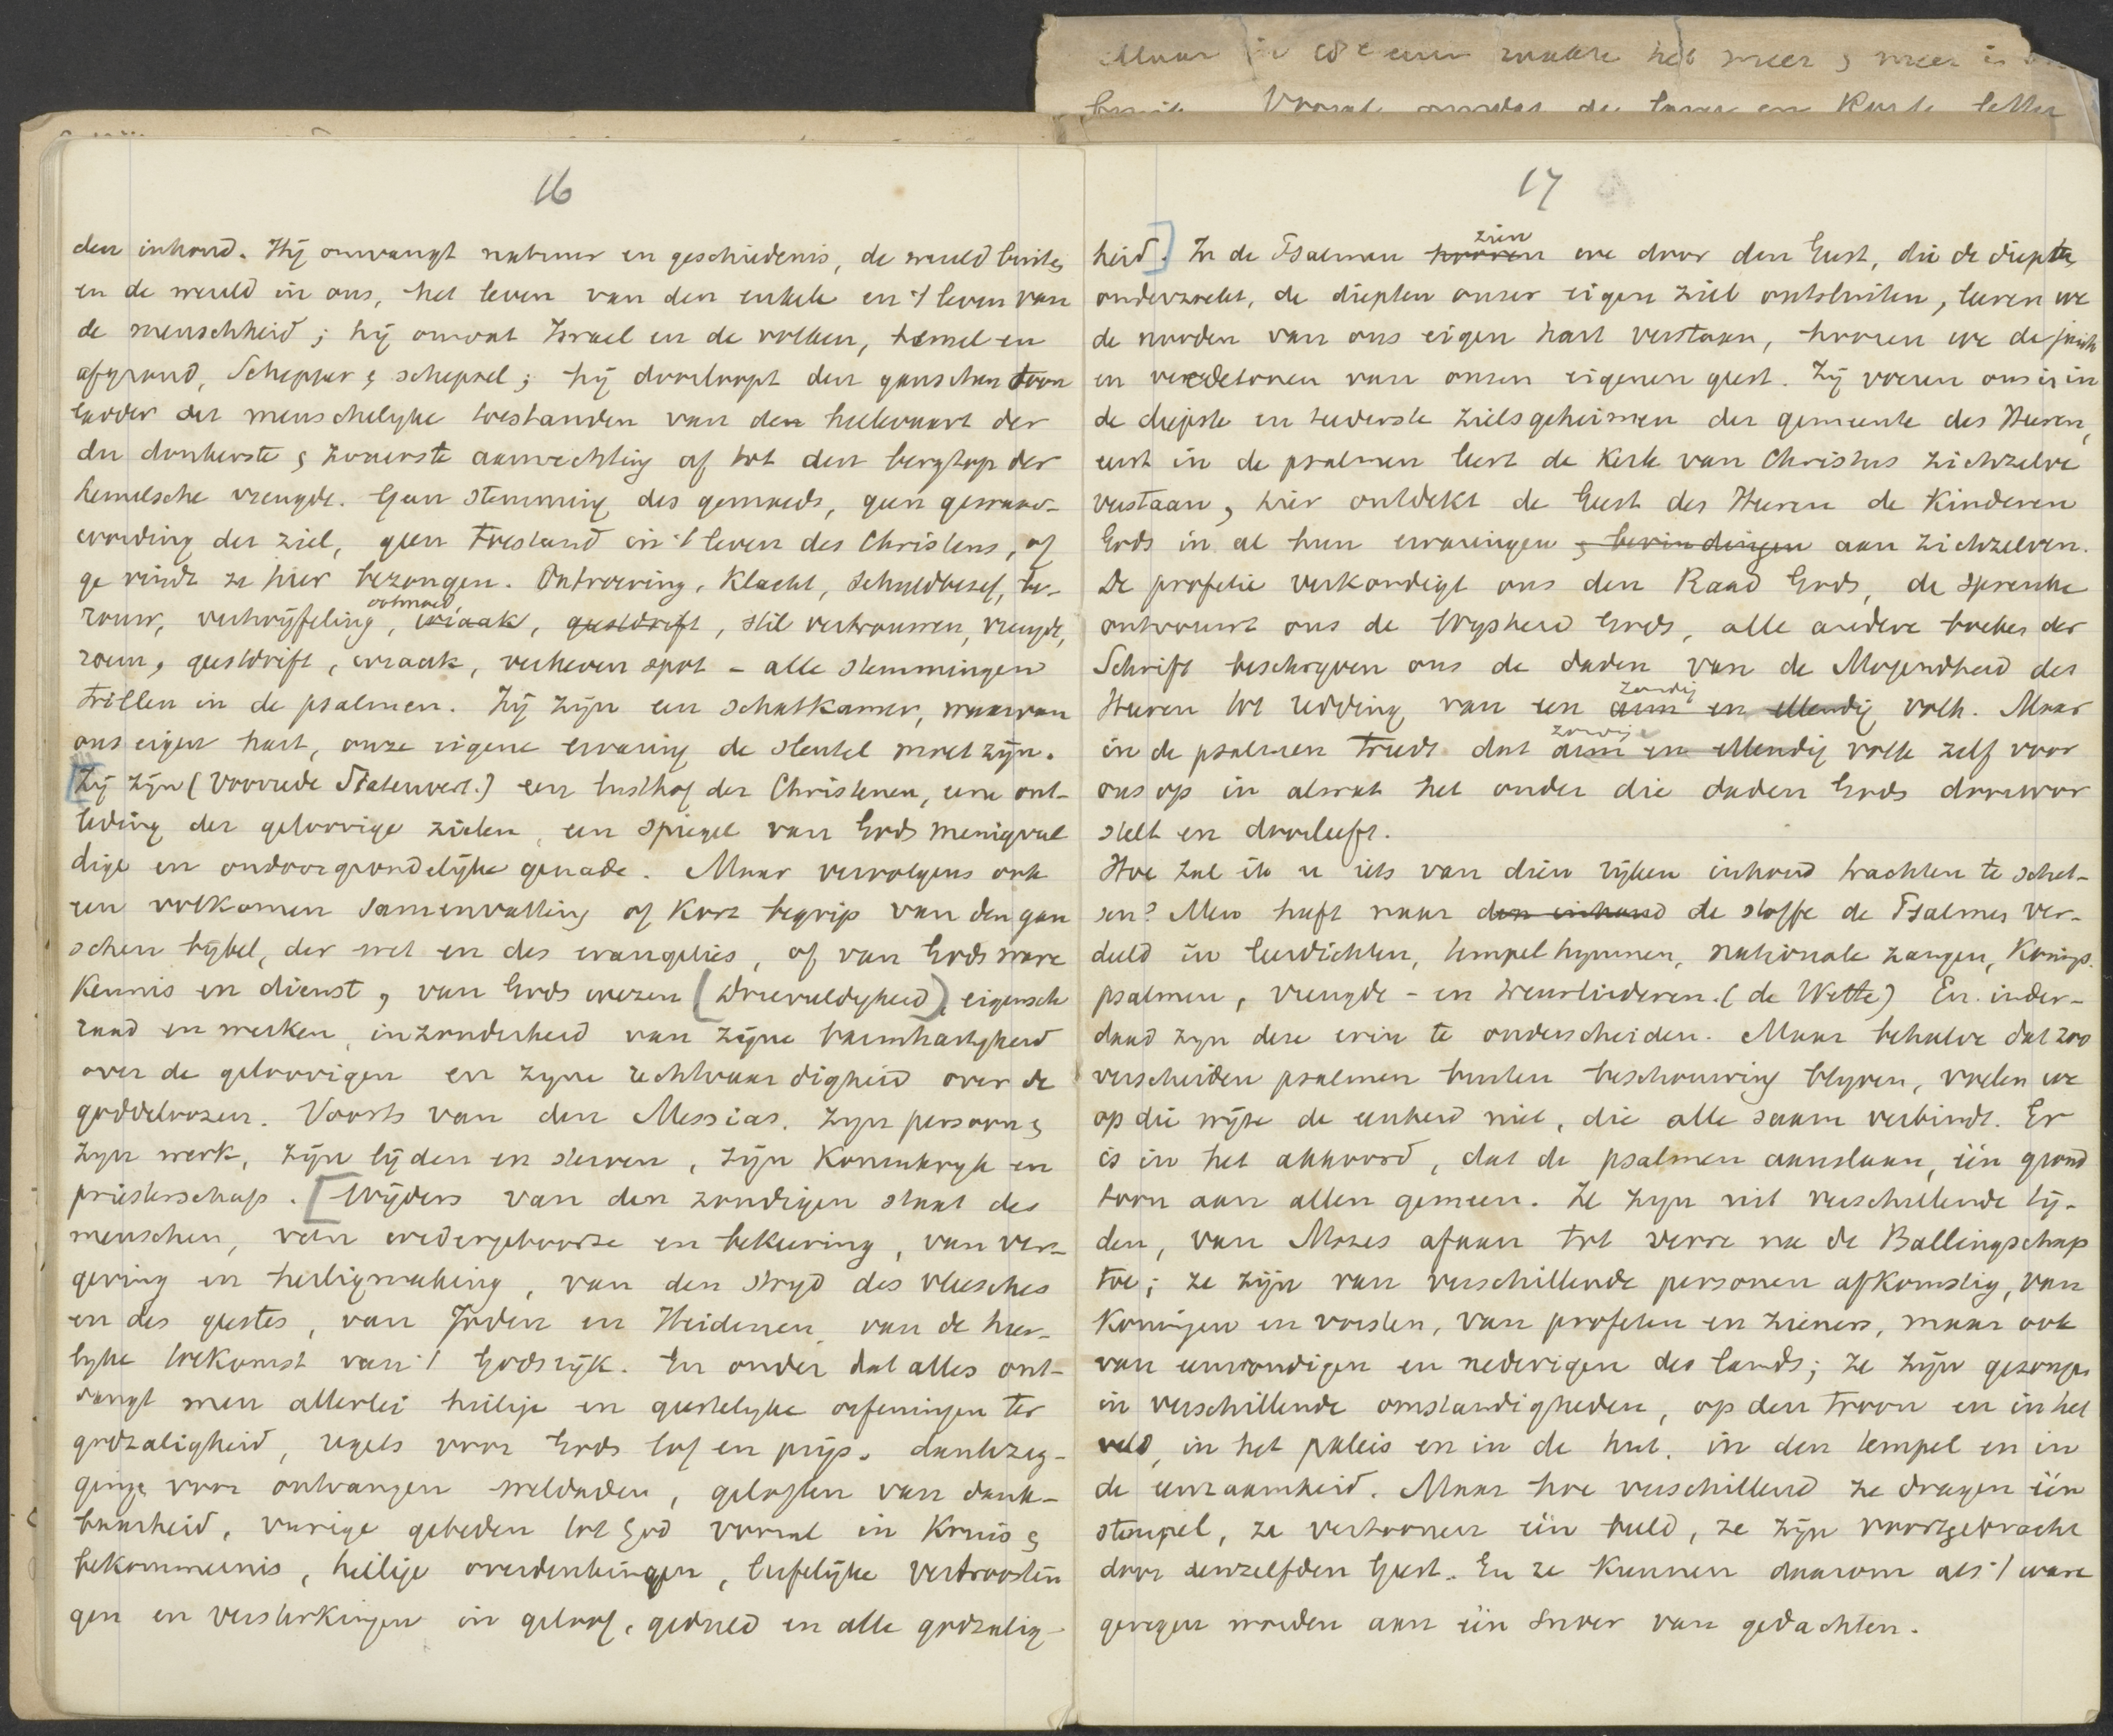 Maar in 18e eeuw raakte het meer & meer in
Vooral omdat de
16
den inhoud. Hij omvangt natuur en geschiedenis, de wereld buiten
en de wereld in ons, het leven van den enkele en 't leven van
de menschheid; hij omvat Israel en de volken, hemel en
afgrond, Schepper & schepsel; hij doorloopt den ganschen toon
ladder der menschelijke toestanden van den hellevaart der
der donkerste & zwaarste aanvechting af tot den bergtop der
hemelsche vreugde. Geen stemming des gemoeds, geen gewaar-
wording der ziel, geen toestand in 't leven des Christens, of
ge vindt ze hier bezongen. Ontroering, klacht, schuldbesef, be-
rouw, vertwijfeling, ootmoed, wraak, geestdrift, stil vertrouwen, vreugde,
roem, geestdrift, wraak, verheven spot - alle stemmingen
trillen in de psalmen. Zij zijn een schatkamer, waarvan
ons eigen hart, onze eigene ervaring de sleutel moet zijn.
[Zij zijn (voorrede Statenvert.) een lusthof der Christenen, eene ont-
leding der geloovige zielen, een spiegel van Gods menigvul
dige en ondoorgrondelijke genade. Maar vervolgens ook
een volkomen samenvatting of kort begrip van den gan
schen bijbel, der wet en des evangelies, of van Gods ware
kennis en dienst, van Gods wezen (Drievuldigheid), eigensch
raad en werken, inzonderheid van zijne barmhartigheid
over de geloovigen en zijne rechtvaardigheid over de
goddeloozen. Voorts van den Messias. Zijn persoon &
zijn werk, zijn lijden en sterven, zijn Koninkrijk en
priesterschap. [Wijders van den zondigen staat des
menschen, van wedergeboorte en bekeering, van ver-
geving en heiligmaking, van den strijd des vleesches
en des geestes, van Joden en Heidenen, van de heer-
lijke toekomst van 't Godsrijk. En onder dat alles ont-
vangt men allerlei heilige en geestelijke oefeningen ter
godzaligheid, regels voor Gods lof en prijs. dankzeg-
ginge voor ontvangen weldaden, geloften van dank-
baarheid, vurige gebeden tot God vooral in Kruis &
bekommernis, heilige overdenkingen, liefelijke vertroostin
gen en versterkingen in geloof, geduld en alle godzalig-
17
heid]. In de Psalmen hooren zien we door den Geest, die de diepten
onderzoekt, de diepten onzer eigen ziel ontsluiten, leeren we
de noden van ons eigen hart verstaan, hooren we de juich
en weedetonen van onzen eigenen geest. Zij voeren ons in in
de diepste en teederste zielsgeheimen der gemeente des Heeren,
eerst in de psalmen leert de Kerk van Christus zichzelve
verstaan, hier ontdekt de Geest des Heeren de Kinderen
Gods in al hun ervaringen & bevindingen aan zichzelven.
De profetie verkondigt ons den Raad Gods, de spreuke
ontvouwt ons de Wijsheid Gods, alle andere boeken der
Schrift beschrijven ons de daden van de Mogendheid des
Heeren tot redding van een arm en ellendig zondig volk. Maar
in de psalmen treedt dat arm en ellendig zondige volk zelf voor
ons op in alwat het onder die daden Gods doorwor
stelt en doorleeft.
Hoe zal ik u iets van dien rijken inhoud trachten te schet-
sen? Men heeft naar den inhoud de stoffe de Psalmen ver-
deeld in leerdichten, tempelhymnen, nationale zangen, Konings.
psalmen, vreugde- en treurliederen. (de Wette) En inder-
daad zijn deze erin te onderscheiden. Maar behalve dat zoo
verscheiden psalmen buiten beschouwing blijven, voelen we
op die wijze de eenheid niet, die alle saam verbindt. Er
is in het akkoord, dat de psalmen aanslaan, één grond
toon aan allen gemeen. Ze zijn uit verschillende tij-
den, van Mozes afaan tot verre na de Ballingschap
toe; ze zijn van verschillende personen afkomstig, van
Koningen en vorsten, van profeten en zieners, maar ook
van eenvoudigen en nederigen des lands; ze zijn gezongen
in verschillende omstandigheden, op den troon en in het
veld, in het paleis en in de hut, in den tempel en in
de eenzaamheid. Maar hoe verschillend ze dragen één
stempel, ze vertoonen één beeld, ze zijn voortgebracht
door denzelfden Geest. En ze kunnen daarom als 't ware
geregen worden aan één snoer van gedachten.